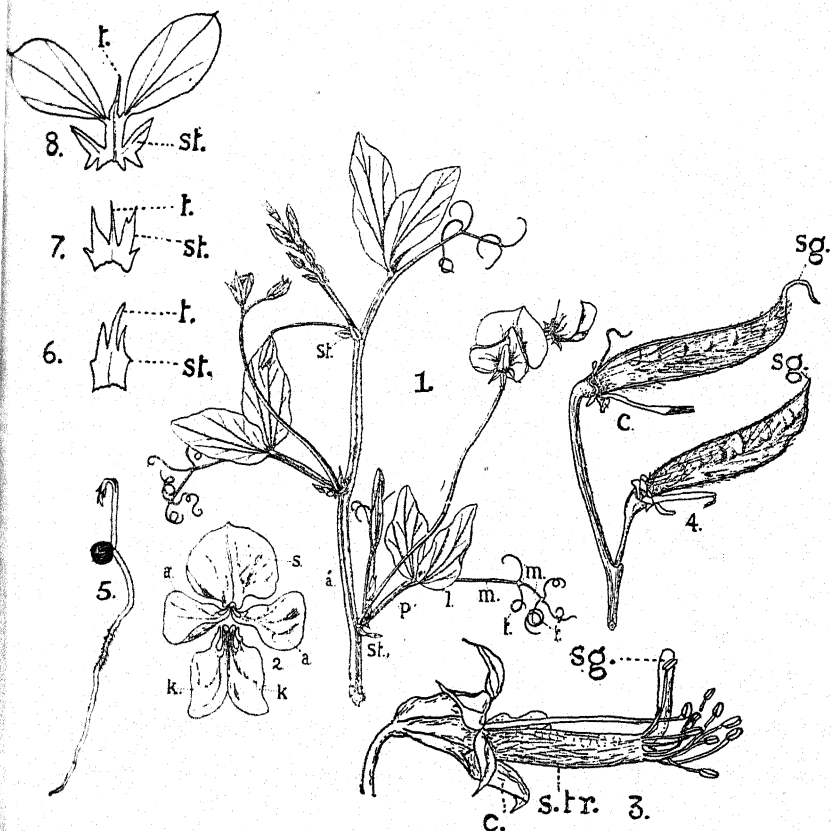 t.
8.
st.
t.
7.
st.
t.
6.
st.
st.
1.
sg.
sg.
c.
4.
5.
a
s.
á.
2
a
k.
k
p.
l.
m.
m.
t.
t.
st.
sg.
c.
s.tr.
3.